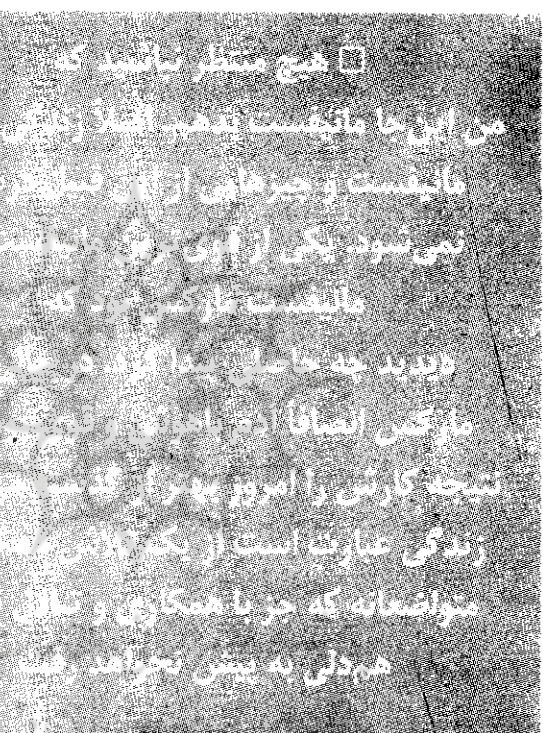 □ هیچ منتظر نباشید که
من این‌جا مانیفست بدهم. اصلاً زندگی
مانیفست و چیزهایی از این قبیل
نمی‌شود. یکی از قوی‌ترین
مانیفست مارکس بود که
دیدید چه حاصلی پیدا کرد. در
مارکس انصافاً آدم باهوش و
نتیجه کارش را امروز بهتر از گذشته
زندگی عبارت است از یک تلاش
متواضعانه که جز با همکاری و
هم‌دلی به پیش نخواهد رفت